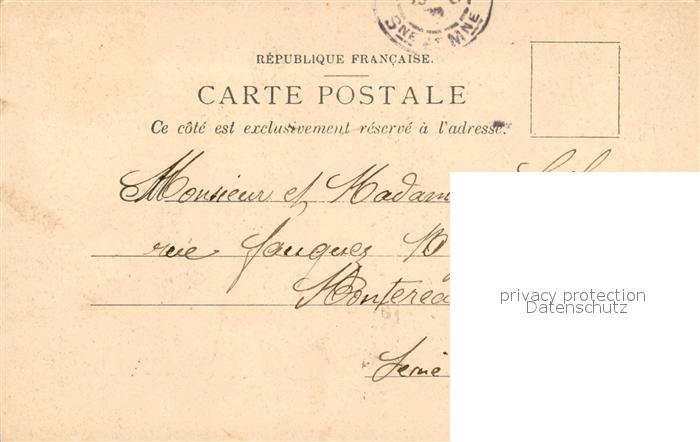 SNE ET MNE
RÉPUBLIQUE FRANÇAISE.
CARTE POSTALE
Ce côté est exclusivement réservé à l'adresse.
Monsieur et Madam
rue
Monterea
privacy protection
Datenschutz
Seine